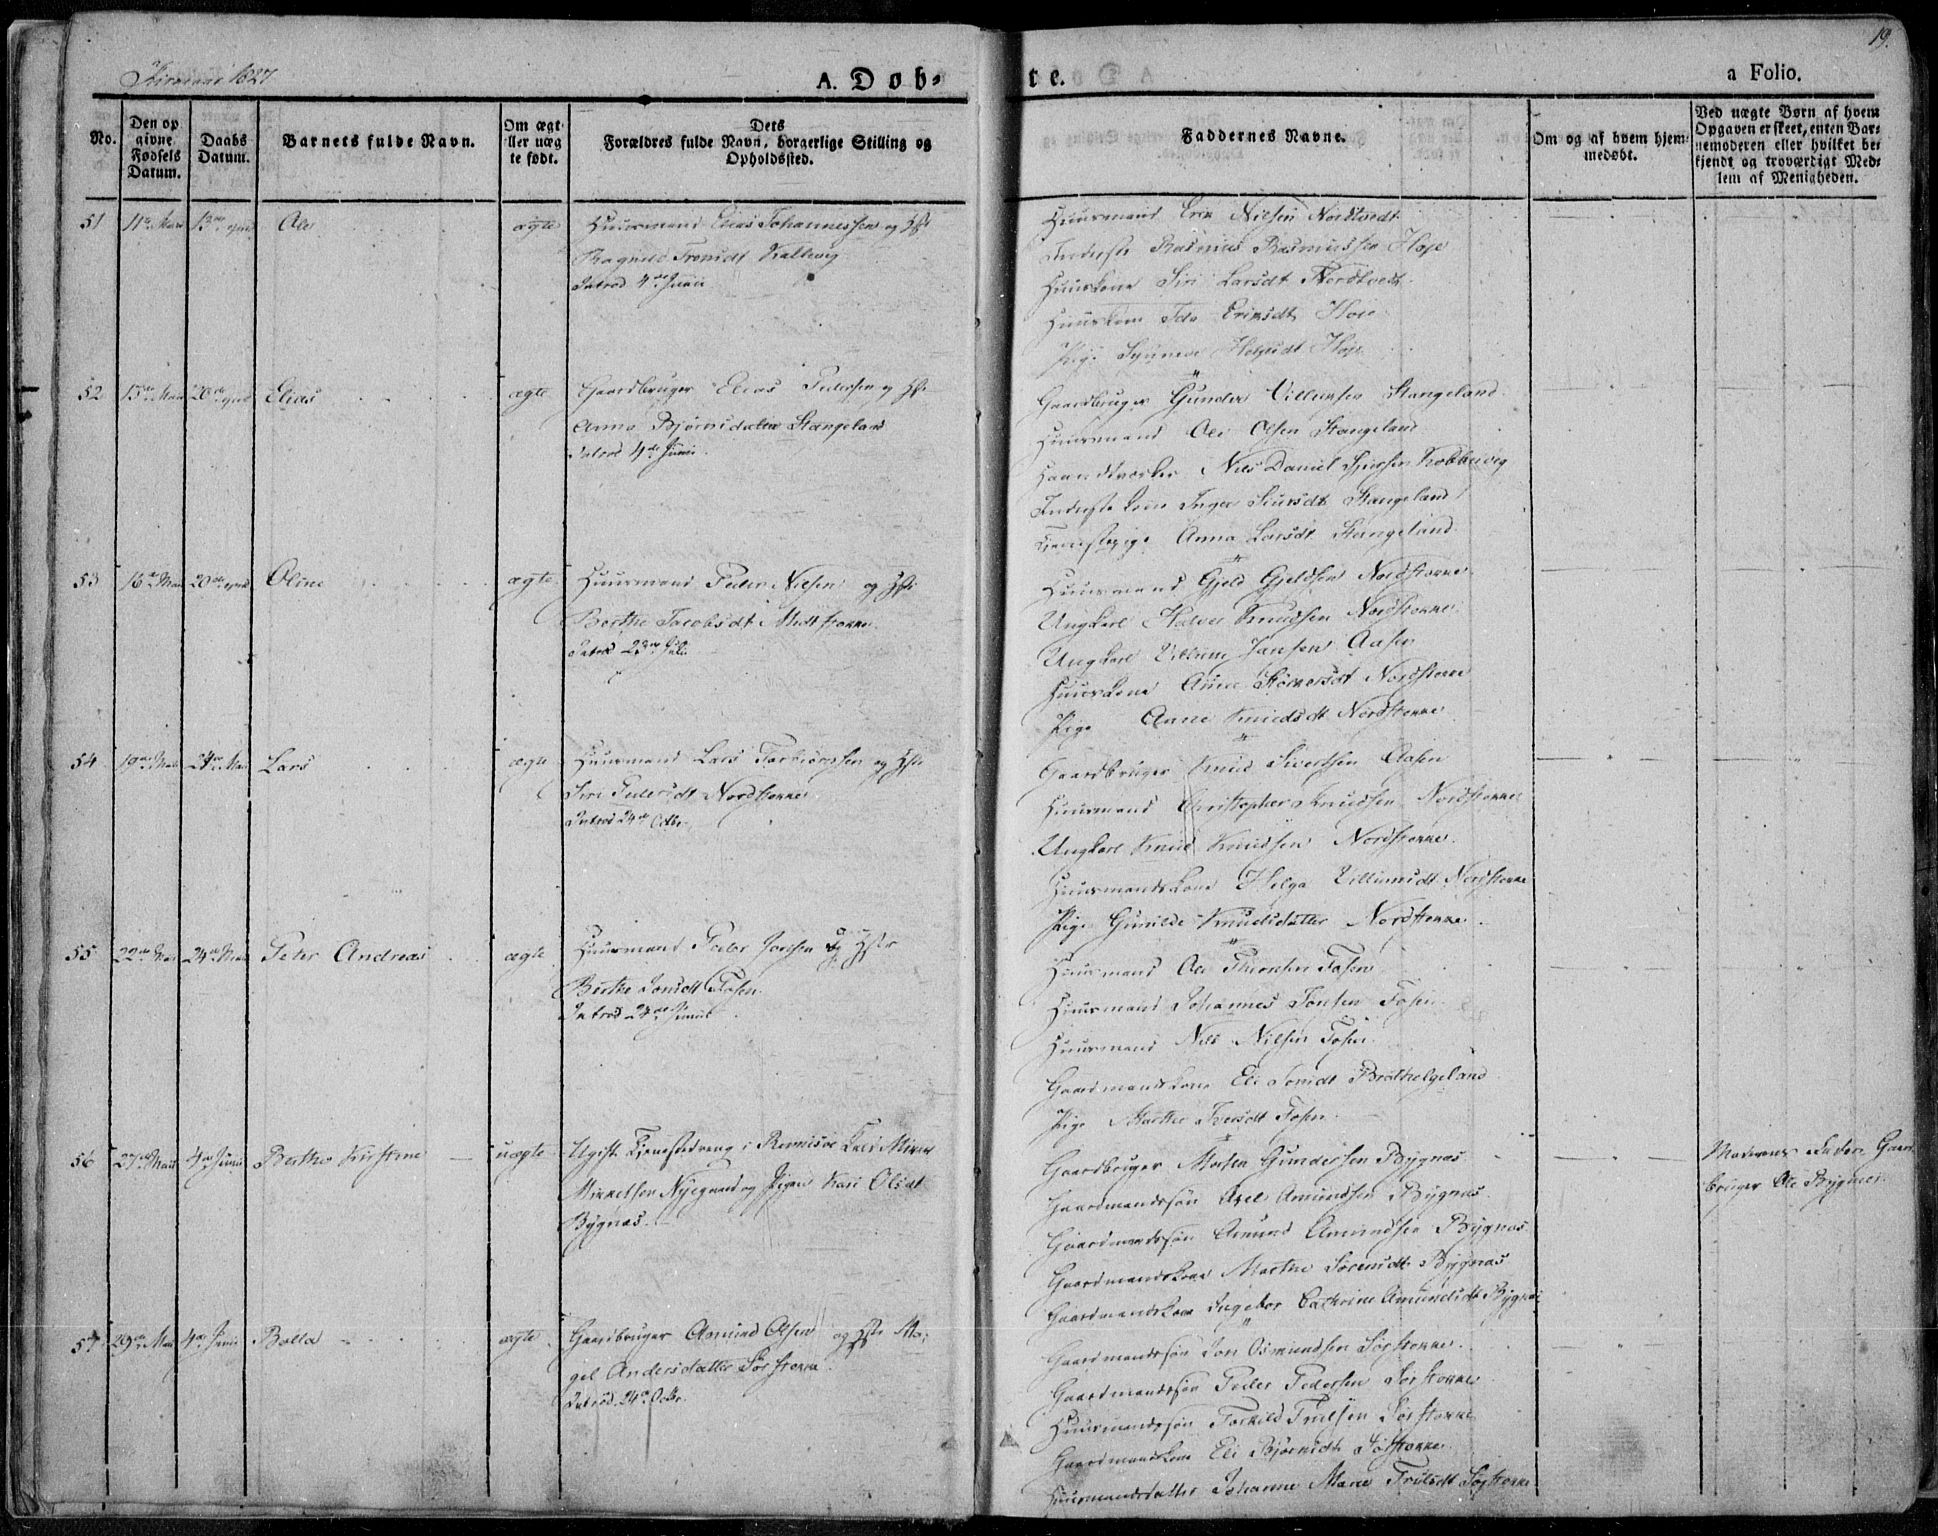 Kirkeaar 1827
A. Døb-
te.
19.
a Folio.
No.
Den op
givne
Fødsels
Datum.
Daabs
Datum.
Barnets fulde Navn.
Om ægt
eller uæg
te født.
Dets
Forældres fulde Navn, borgerlige Stilling og
Opholdssted.
Faddernes Navne.
Om og af hvem hjem-
medøbt.
Ved uægte Børn af hvem
Opgaven er skeet, enten Bar-
nemoderen eller hvilket be-
kjendt og troværdigt Med-
lem af Menigheden.
51 11te Mai 13de Ole ægte
Huusmand Elias Johannessen og Hst
Tronsdt Kallevig
Introd 4de Junii
Huusmand Erik Nielsen Nordtvedt
Inderste Rasmus Rasmussen Høje
Huuskone Siri Larsdt Nordtvedt
Huuskone Eriksdt Høie
Pige Helgesdt Høje
52 15de Mai 20de Elias ægte
Gaardbruger Elias Pedersen og Hst
Anna Bjørnsdatter Stangeland
Introd 4de Junii.
Gaardbruger Gunder Villumsen Stangeland
Huusmand Ole Olsen Stangeland
Haandtværker Nils Daniel Kobbervig
Inderstekone Inger Siursdt Stangeland
Tjenestepige Anna Larsdt Stangeland
53 16de Mai 20de Oline ægte
Huusmand Peder Nielsen og Hst
Berthe Jacobsdt Medstokke.
Introd 23de Juli
Huusmand Gjeld Gjeldsen Nordstokke
Ungkarl Halvor Knudsen Nordstokke
Ungkarl Villum Jansen Aasen
Huuskone Nordstokke
Pige Anne Knudsdt Nordstokke
54 19de Mai 24de Mai Lars ægte
Huusmand Lars Torbiørnsen og Hst
Siri Pedersdt Nordstokke
Introd 24de Octbr.
Gaardbruger Knud Sivertsen Aasen
Huusmand Christopher Knudsen Nordstokke
Ungkarl Knud Knudsen Nordstokke.
Huusmandskone Helga Villumsdt Nordstokke
Pige Gunilde Knudsdatter Nordstokke
55 22de Mai 24de Mai Peter Andreas ægte
Huusmand Peder og Hst
Berthe Fosen
Introd 24de Junii
Huusmand Ole Fosen
Huusmand Johannes Fosen
Huusmand Nils Nilsen Fosen
Gaardmandskone Eli Brathelgeland
Pige Marthe Iversdt Fosen
56 27de Mai 4de Junii Berthe Kirstine uægte
Ugift Tjenestedreng i
Mikkelsen og Pigen Kari Olsdt
Bygnæs.
Gaardbruger Morten Gundersen Bygnæs
Gaardmandssøn Axel Amundsen Bygnæs.
Gaardmandssøn Amund Amundsen Bygnæs
Gaardmandskone Marthe Sørensdt Bygnæs
Gaardmandskone Ingebor Cathrine Amundsdt Bygnæs
Moderens Fader Gaard-
bruger Ole Bygnæs.
57 29de Mai 4de Junii Bolla ægte
Gaardbruger Aamund Olsen og Hst Ma-
gel Andersdatter Sørstokke
Introd. 24de Octbr.
Gaardmandssøn Jon Osmundsen Sørstokke
Gaardmandssøn Peder Pedersen Sørstokke
Huusmandssøn Torkild Truelsen Sørstokke
Gaardmandskone Eli Bjørnsdt Sørstokke
Huusmandsdatter Johanne Marie Truelsdt Sørstokke